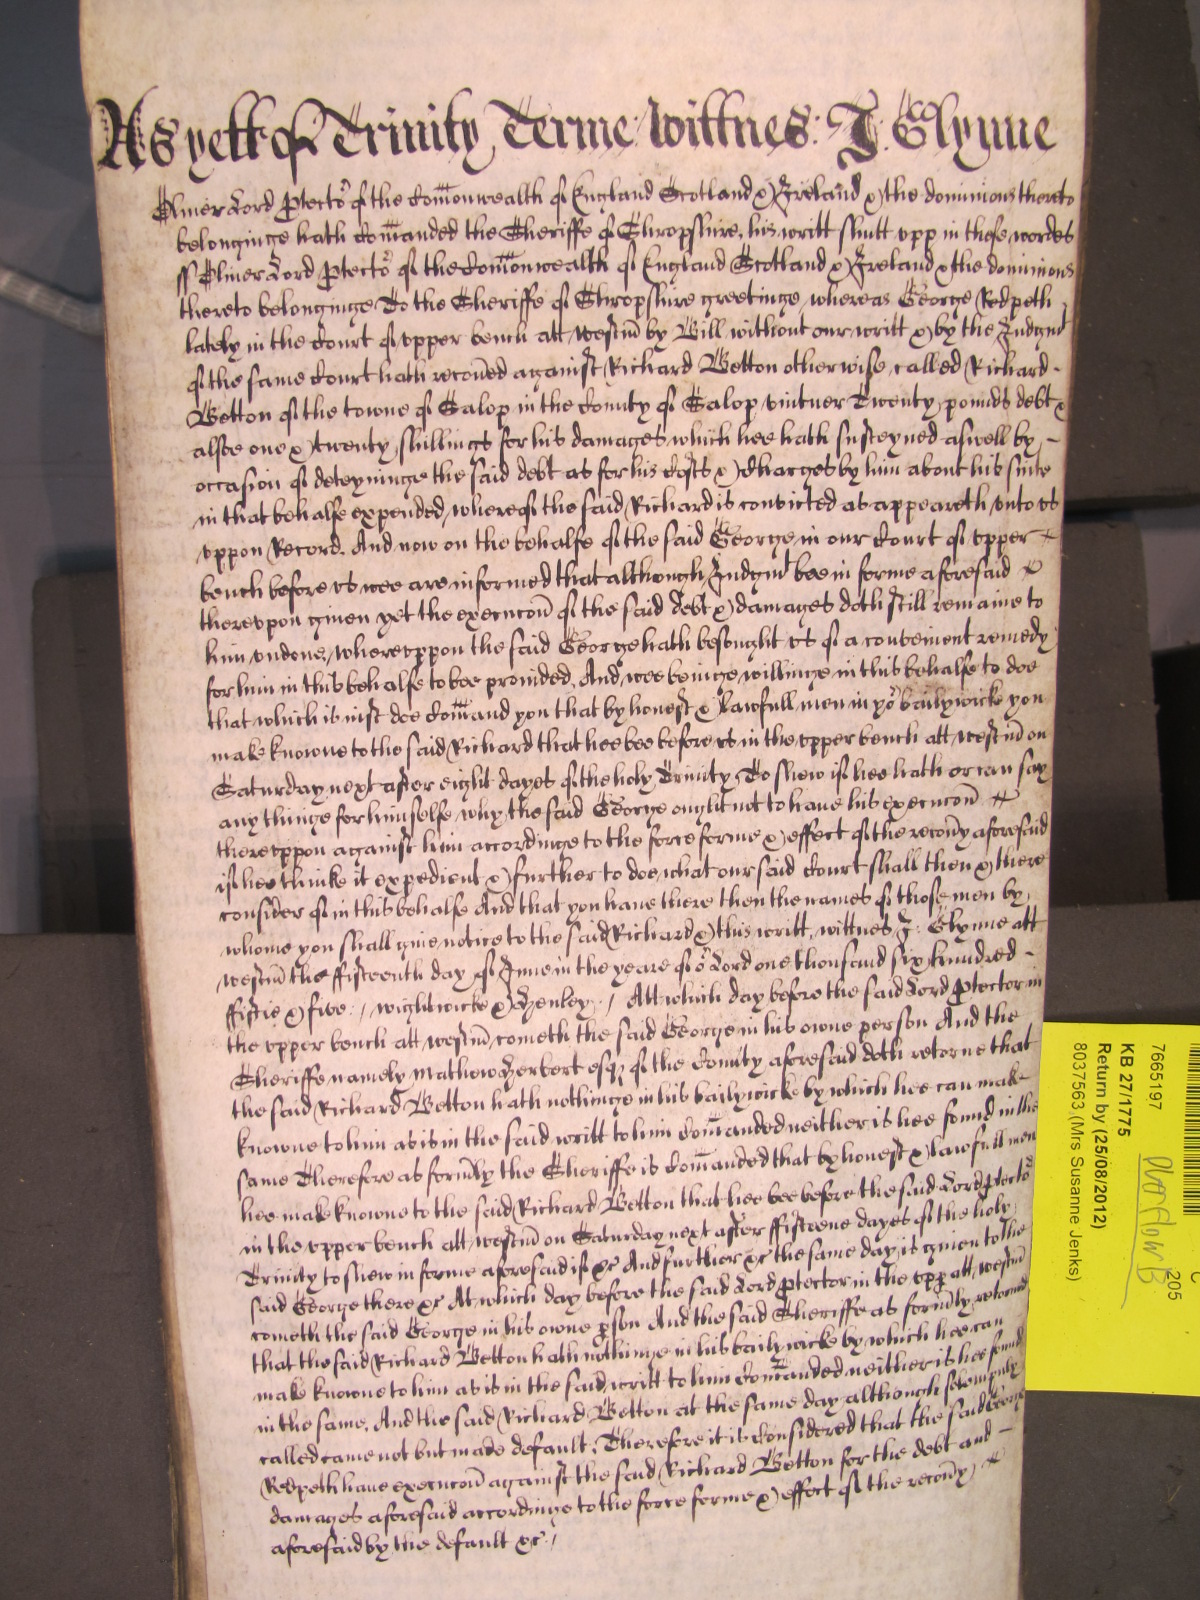 As yett of Trinity Terme Wittnes: J: Glynne
Oliver Lord Ptector of the Comonwealth of England Scotland & Ireland & the dominions thereto
belonginge hath Comanded the Sheriffe of Shropshire, his writt shutt vpp in these wordes
ss Oliver Lord Ptector of the Comonwealth of England Scotland & Ireland & the dominions
thereto belonginge To the Sheriffe of Shropshire greetinge, whereas George Redpeth
lately in the Court of vpper bench att Westm by Bill without our writt & by the Judgmt
of the same Court hath recoued against Richard Betton otherwise, called Richard -
Betton of the towne of Salop in the County of Salop vintner Twenty, pounds debt &
alsoe one & twenty, shillings for his damages which hee hath susteyned aswell by -
occasion of deteyninge the said debt as for his Costs & Charges by him about his suite
in that behalfe expended, whereof the said Richard is convicted as appeareth vnto vs
vppon Record. And now on the behalfe of the said George in our Court of vpper
bench before vs wee are informed that although Judgmt bee in forme aforesaid
therevpon giuen yet the execucon of the said debt & damages doth still remaine to
him vndone, wherevppon the said George hath besought vs of a convenient remedy
for him in this behalfe to bee prouided, And wee beinge willinge in this behalfe to doe
that which is iust doe Comand you that by honest & lawfull men in yor bailywicke you
make knowne to the said Richard that hee bee before vs in the vpper bench att Westm on
Saturday next after eight dayes of the holy Trinity To shew if hee hath or can say
any thinge for himselfe why the said George ought not to haue his execucon
therevppon against him accordinge to the force forme & effect of the recouy aforesaid
if hee thinke it expedient & further to doe what our said Court shall then & there
consider of in this behalfe And that you haue there then the names of those men by
whome you shall giue notice to the said Richard & this writt, wittnes J: Glynne att
Westm the ffifteenth day of June in the yeare of or Lord one thousand six hundred -
ffiftie & five: / Wightwicke & Henley: / Att which day before the said Lord Ptector in
the vpper bench att Westm, cometh the said George in his owne person And the
Sheriffe namely Mathow Herbert esqz of the County aforesaid doth retorne that
the said Richard Betton hath nothinge in his bailywicke by which hee can make
knowne to him as is in the said writt to him Comanded neither is hee found in the
same Therefore as formly the Sheriffe is Comanded that by honest & lawfull men
hee make knowne to the said Richard Betton that hee bee before the said Lord Ptector
in the vpper bench att Westm on Saturday next after ffifteene dayes of the holy
Trinity to shew in forme aforesaid if &c And further &c the same day is giuen to the
said George there &c At which day before the said Lord Ptector in the vpp att Westm
cometh the said George in his owne pson And the said Sheriffe as formly retorned
that the said Richard Betton hath nothinge in his bailywicke by which hee can
make knowne to him as is in the said writt to him Comanded neither is hee found
in the same. And the said Richard Betton at the same day although solempnly
called came not but made default, Therefore it is Considered that the said George
Redpeth haue execucon against the said Richard Betton for the debt and -
damages aforesaid accordinge to the force forme & effect of the recouy
aforesaid by the default &c: /
7665197
KB 27/1775
Return by (25/08/2012)
8037563 (Mrs Susanne Jenks)
205